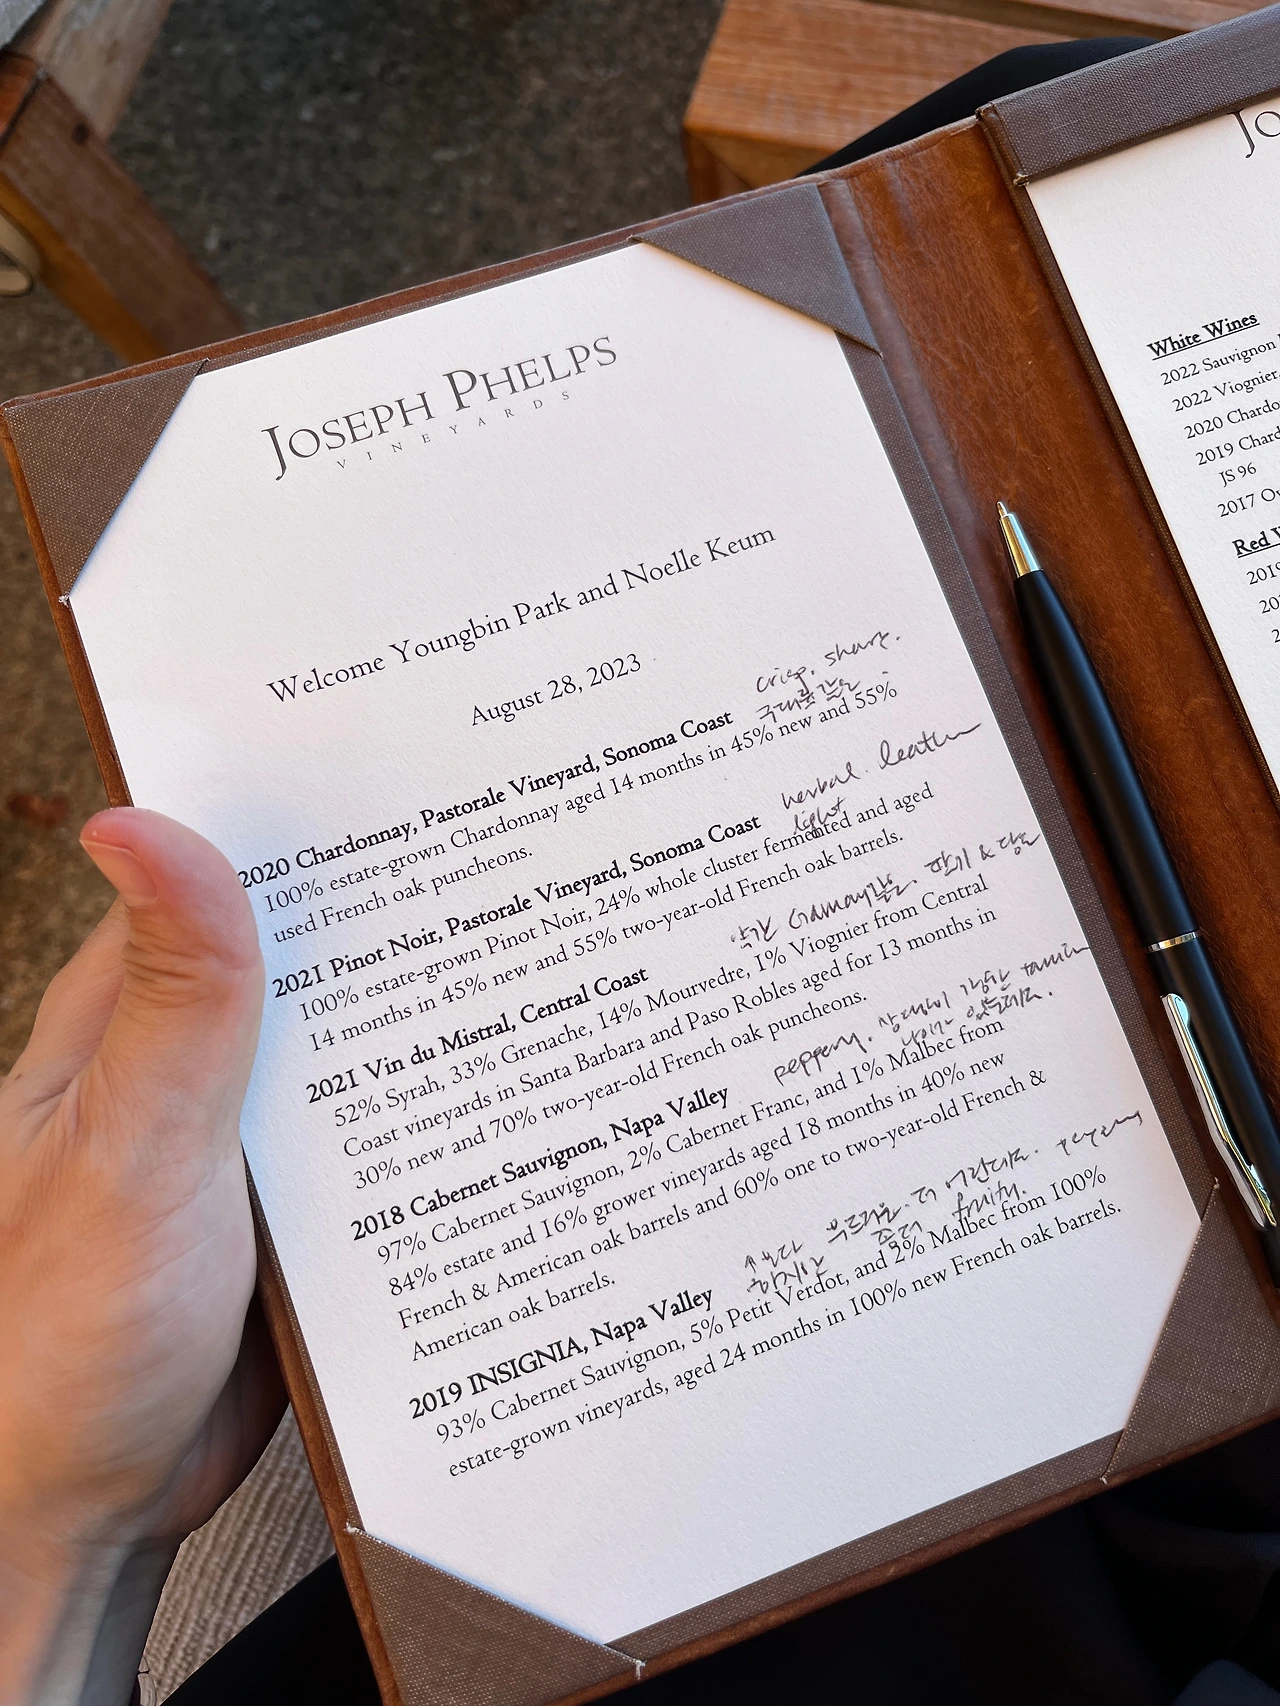 JOSEPH PHELPS
VINEYARDS
Welcome Youngbin Park and Noelle Keum
August 28, 2023
crisp. sharp.
2020 Chardonnay, Pastorale Vineyard, Sonoma Coast
100% estate-grown Chardonnay aged 14 months in 45% new and 55%
used French oak puncheons.
herbal. leather
light
2021 Pinot Noir, Pastorale Vineyard, Sonoma Coast
100% estate-grown Pinot Noir, 24% whole cluster fermented and aged
14 months in 45% new and 55% two-year-old French oak barrels.
약간 Gamay같은. 딸기 &
2021 Vin du Mistral, Central Coast
52% Syrah, 33% Grenache, 14% Mourvedre, 1% Viognier from Central
Coast vineyards in Santa Barbara and Paso Robles aged for 13 months in
30% new and 70% two-year-old French oak puncheons.
peppery. 상당히 강한 tannin
2018 Cabernet Sauvignon, Napa Valley
97% Cabernet Sauvignon, 2% Cabernet Franc, and 1% Malbec from
84% estate and 16% grower vineyards aged 18 months in 40% new
French & American oak barrels and 60% one to two-year-old French &
American oak barrels.
↑보다 부드러운. 더 어린데도. peppery
하지만 좀더 fruity.
2019 INSIGNIA, Napa Valley
93% Cabernet Sauvignon, 5% Petit Verdot, and 2% Malbec from 100%
estate-grown vineyards, aged 24 months in 100% new French oak barrels.
JO
White Wines
2022 Sauvignon
2022 Viognier,
2020 Chardo
2019 Chard
JS 96
2017 Ov
Red W
2019
20
2